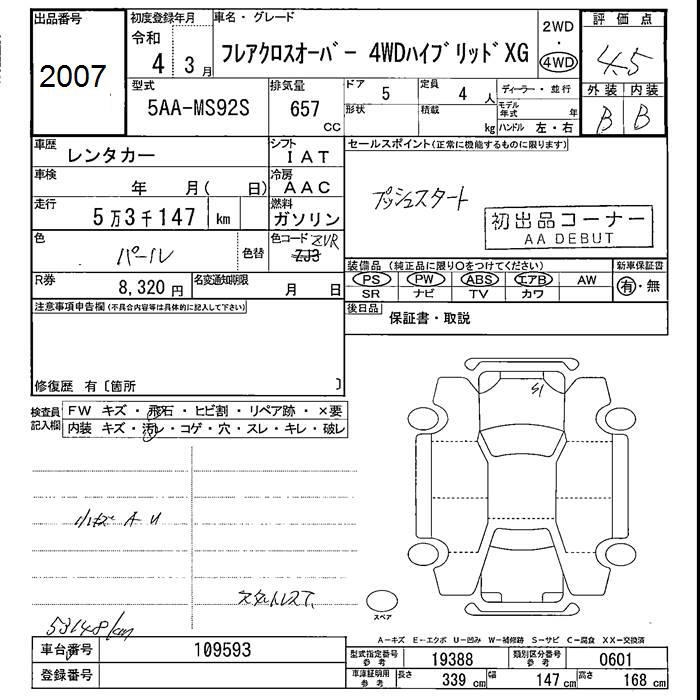 出品番号
2007
初度登録年月
令和
4 3 月
車名・グレード
フレアクロスオーバー 4WDハイブリッドXG
2WD
・
4WD
評価点
4.5
外装 内装
B B
型式
5AA-MS92S
排気量
657
CC
ドア 5
定員 4 人
形状
積載
kg
ディーラー・並行
モデル年式 年
ハンドル 左・右
車歴 レンタカー
シフト IAT
車検 年 月( 日)
冷房 AAC
走行 5万3千147 km
燃料 ガソリン
色 パール
色替
色コード ZVR
ZJ3
R券 8,320 円
名変通知期限 月 日
セールスポイント(正常に機能するものに限ります)
プッシュスタート
初出品コーナー
AA DEBUT
装備品 (純正品に限り○をつけてください)
新車保証書
PS PW ABS エアB AW
SR ナビ TV カワ
有・無
後日品 保証書・取説
注意事項申告欄(不具合内容等は具体的に記入して下さい)
修復歴 有〔箇所 〕
検査員記入欄
FW キズ・飛石・ヒビ割・リペア跡・×要
内装 キズ・汚レ・コゲ・穴・スレ・キレ・破レ
S1
小キズ A U
53148km
スペア
A-キズ E-エクボ U-凹み W-補修跡 S-サビ C-腐食 XX-交換済
車台番号 109593
登録番号
型式指定番号参考 19388
類別区分番号参考 0601
車庫証明用参考
長さ 339 cm
幅 147 cm
高さ 168 cm